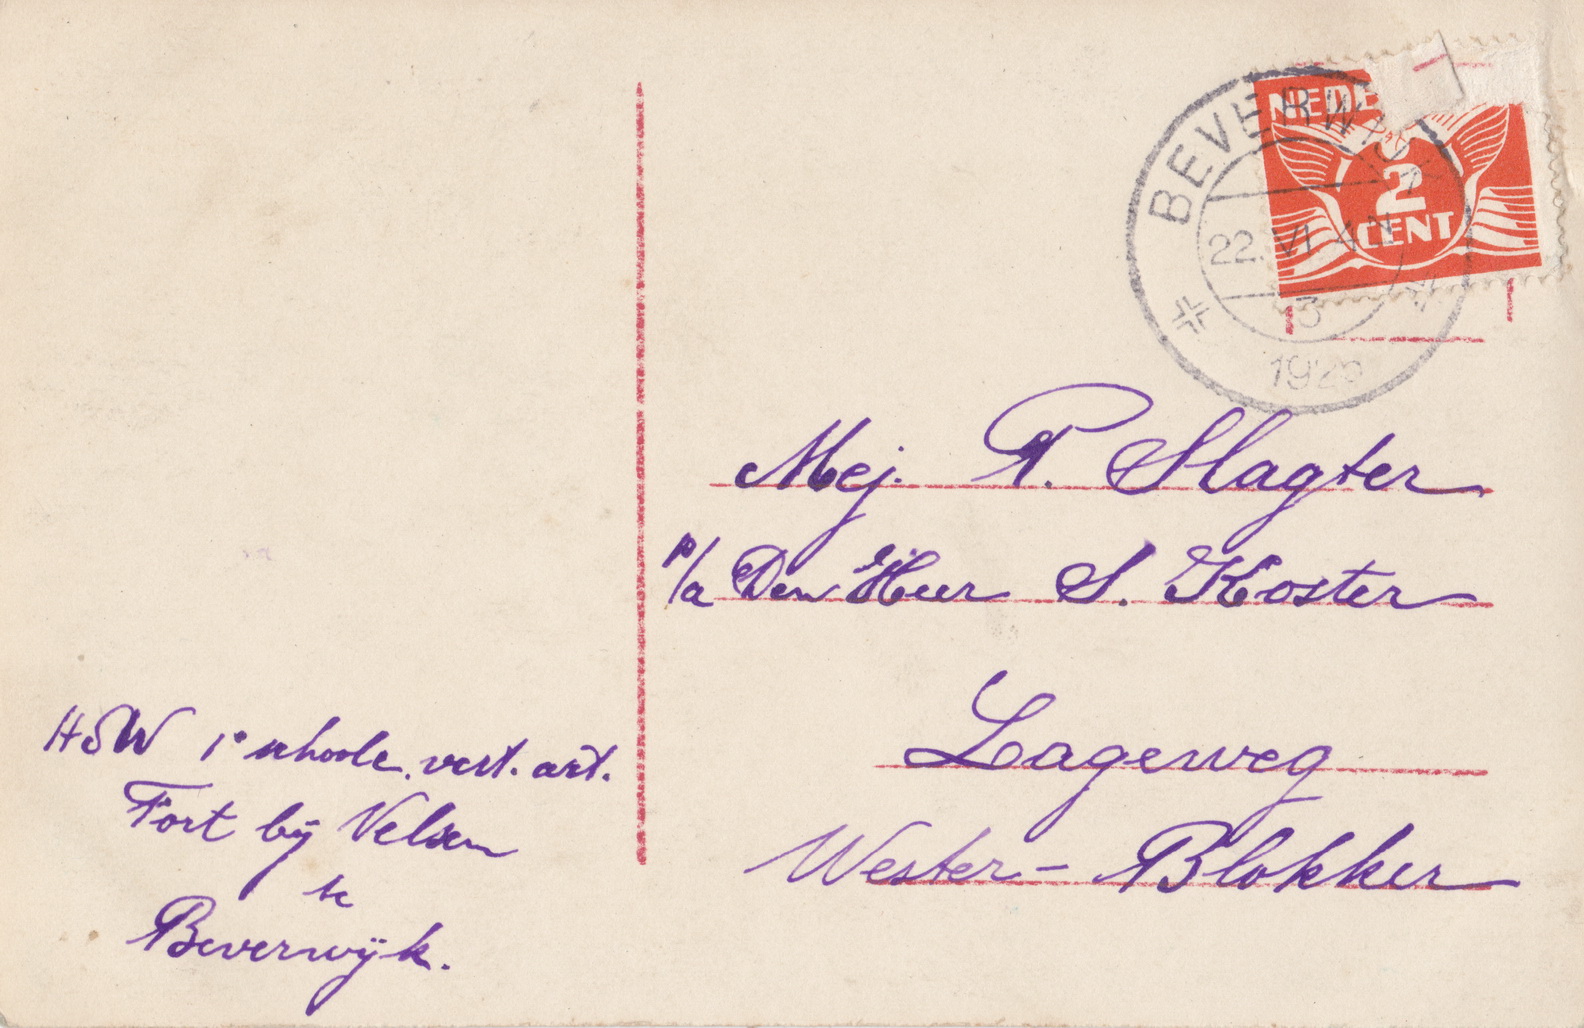 BEVERWIJK
22. VI 4 N
3
NEDE
2
CENT
Mej. P. Slagter
p/a Den Heer S. Koster
Lageweg
Wester-Blokker
HSW 1e schoole. vest. art.
Fort bÿ Velsen
te
Beverwÿk.